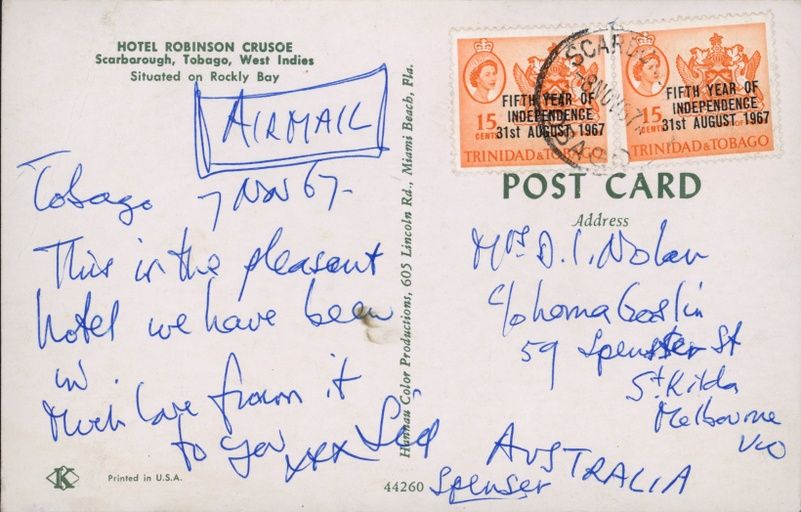 HOTEL ROBINSON CRUSOE
Scarborough, Tobago, West Indies
Situated on Rockly Bay
AIRMAIL
Tobago 7 Nov 67.
This is the pleasant
hotel we have been
in.
Much love from it
to you xxx
K
Printed in U.S.A.
Hannau Color Productions, 605 Lincoln Rd., Miami Beach, Fla.
44260
FIFTH YEAR OF
INDEPENDENCE
31st AUGUST 1967
15
CENTS
TRINIDAD & TOBAGO
FIFTH YEAR OF
INDEPENDENCE
31st AUGUST 1967
15
CENTS
TRINIDAD & TOBAGO
8 NOV 67
POST CARD
Address
Mrs D. I. Nolan
c/o
59 Spenser St
St. Kilda
Melbourne
Vic
AUSTRALIA
Spenser